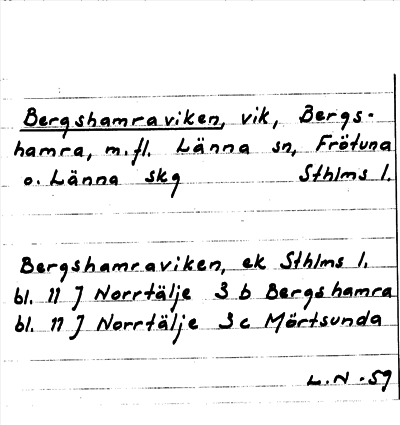 Bergshamraviken, vik, Bergs-
hamra, m.fl. Länna sn, Frötuna
o. Länna skg Sthlms l.
Bergshamraviken, ek Sthlms l.
bl. 11 J Norrtälje 3 b Bergshamra
bl. 11 J Norrtälje 3 c Mörtsunda
L.N -59